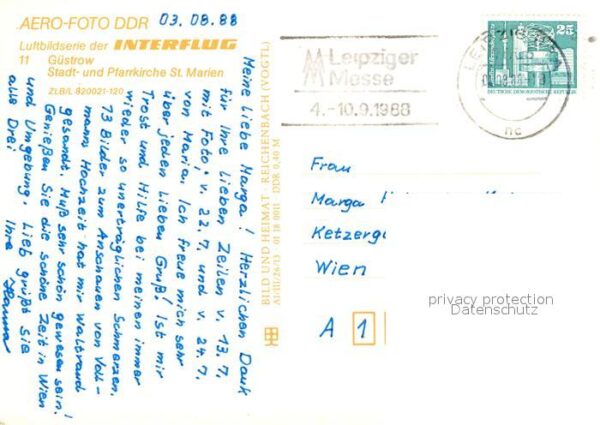 AERO-FOTO DDR
03.08.88
Luftbildserie der INTERFLUG
11 Güstrow
Stadt- und Pfarrkirche St. Marien
ZLB/L 820021-120
Meine liebe Marga! Herzlichen Dank
für Ihre lieben Zeilen v. 13.7.
mit Foto, v. 22.7. und v. 24.7.
von Maria. Ich freue mich sehr
über jeden lieben Gruß! Ist mir
Trost und Hilfe bei meinen immer
wieder so unerträglichen Schmerzen.
73 Bilder zum Anschauen von Voll-
manns Hochzeit hat mir Waltraud
gesandt. Muß sehr schön gewesen sein!
Genießen Sie die schöne Zeit in Wien
und Umgebung. Lieb grüßt Sie
alle Drei Ihre
BILD UND HEIMAT · REICHENBACH (VOGTL)
A1/III/26/13 01 18 0011 DDR 0,40 M
Leipziger
Messe
4.-10.9.1988
LEIPZIG
nc
25
DEUTSCHE DEMOKRATISCHE REPUBLIK
Frau
Marga
Ketzerg
Wien
A 1
privacy protection
Datenschutz